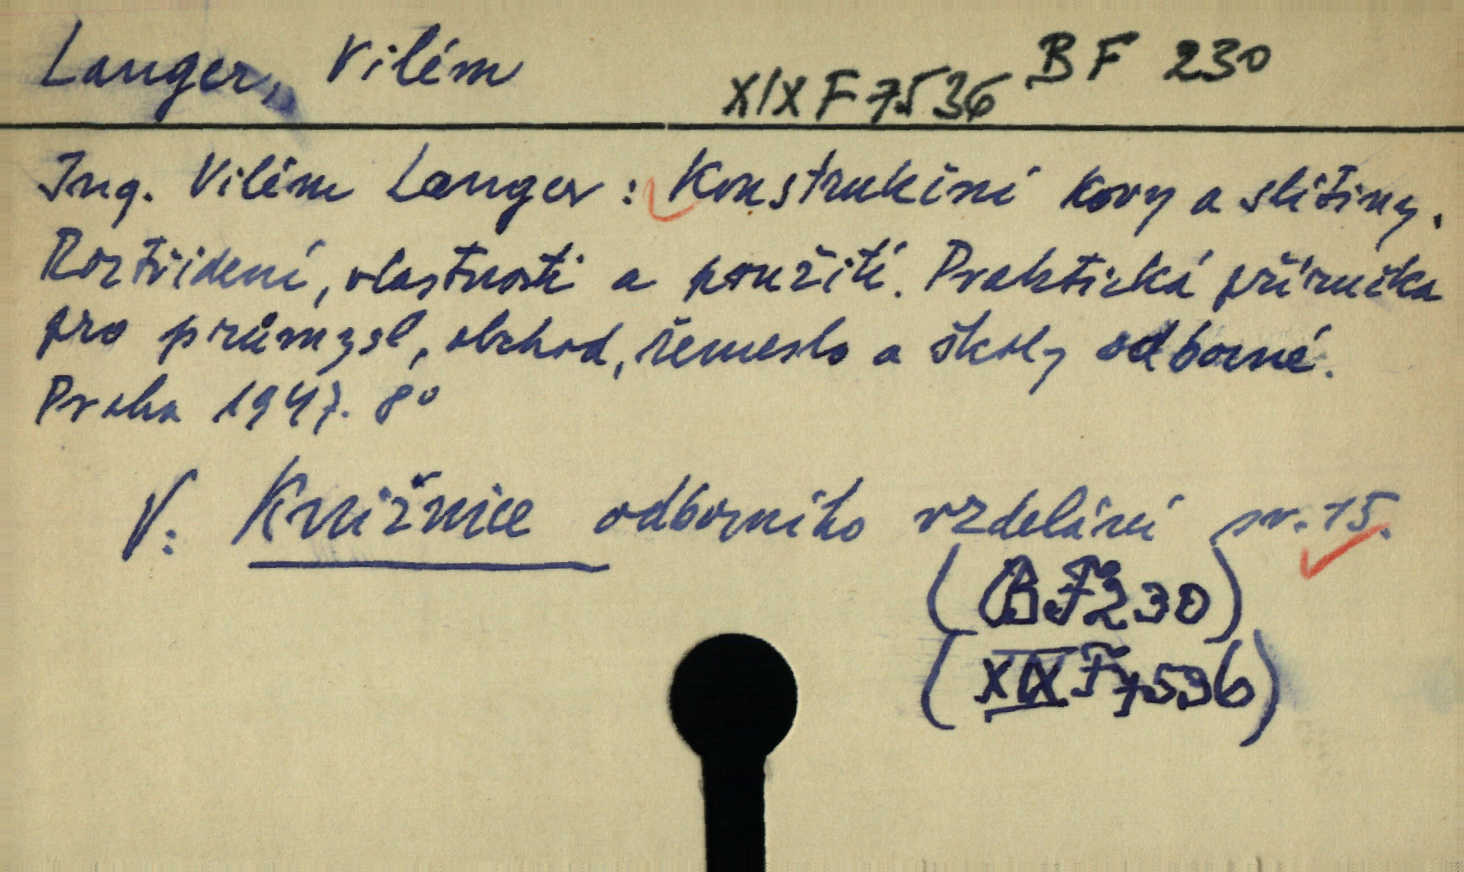 Langer, Vilém
XIX F 7536 BF 230
Ing. Vilém Langer: Konstrukční kovy a slitiny.
Roztřídení, vlastnosti a použití. Praktická příručka
pro průmysl, obchod, řemeslo a školy odborné.
Praha 1947. 8°
V: Knižnice odborného vzdelání sv. 15.
(BF230)
(XIX F 7536)